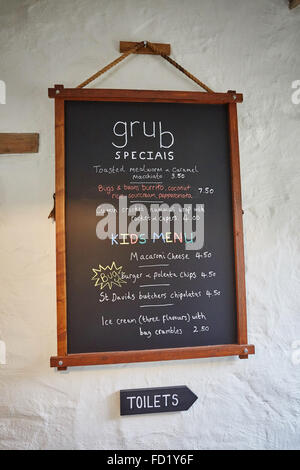 grub
SPECIALS
Toasted mealworm & Caramel
macchiato 3.50
Bugs & beans burrito, coconut 7.50
rice, sourcream,
cricket with
rocket & capers 4.50
KIDS MENU
Macaroni Cheese 4.50
Bug Burger & polenta chips 4.50
St Davids butchers chipolatas 4.50
Ice cream (three flavours) with
bug crumbles 2.50
TOILETS
a alamy stock photo
FD1Y6F